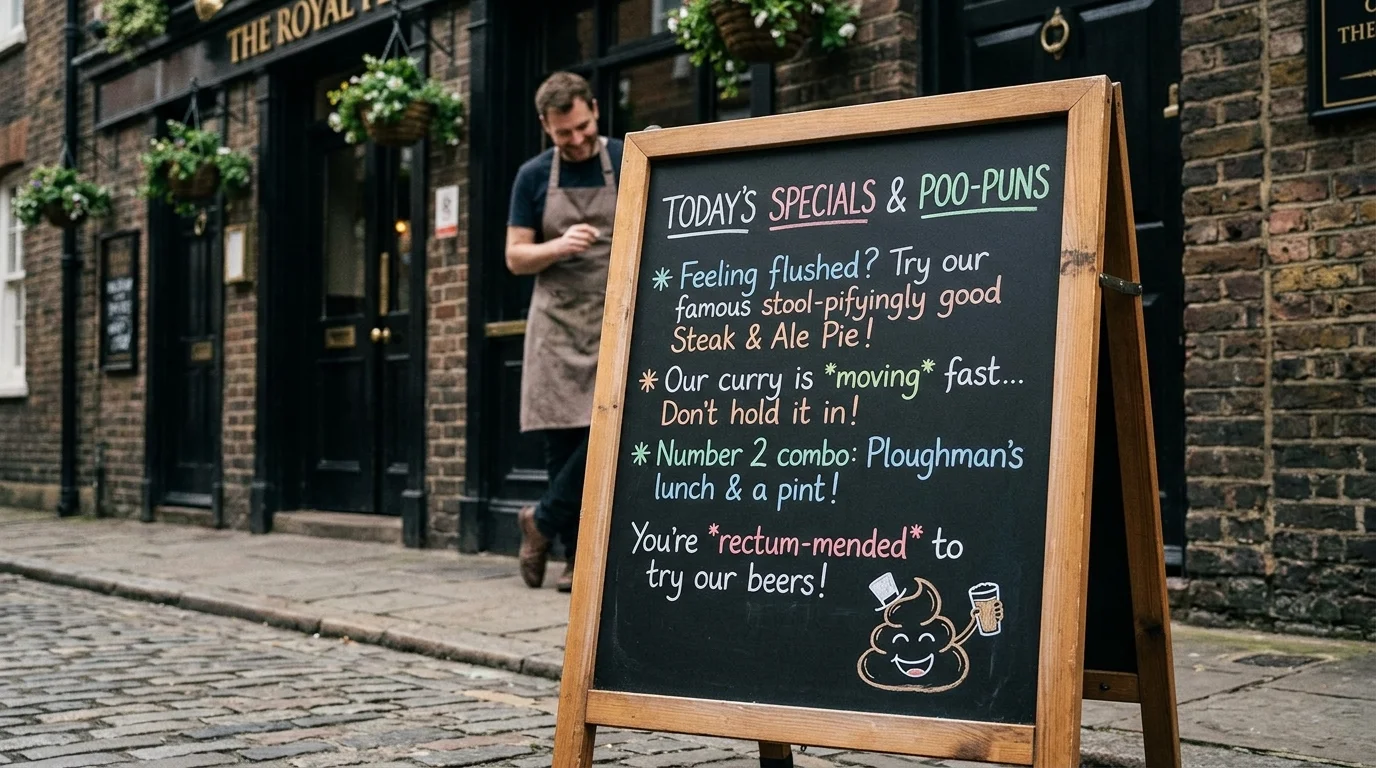 THE ROYAL
TODAY'S SPECIALS & POO-PUNS
* Feeling flushed? Try our
famous stool-pifyingly good
Steak & Ale Pie!
* Our curry is *moving* fast...
Don't hold it in!
* Number 2 combo: Ploughman's
lunch & a pint!
You're *rectum-mended* to
try our beers!
THE